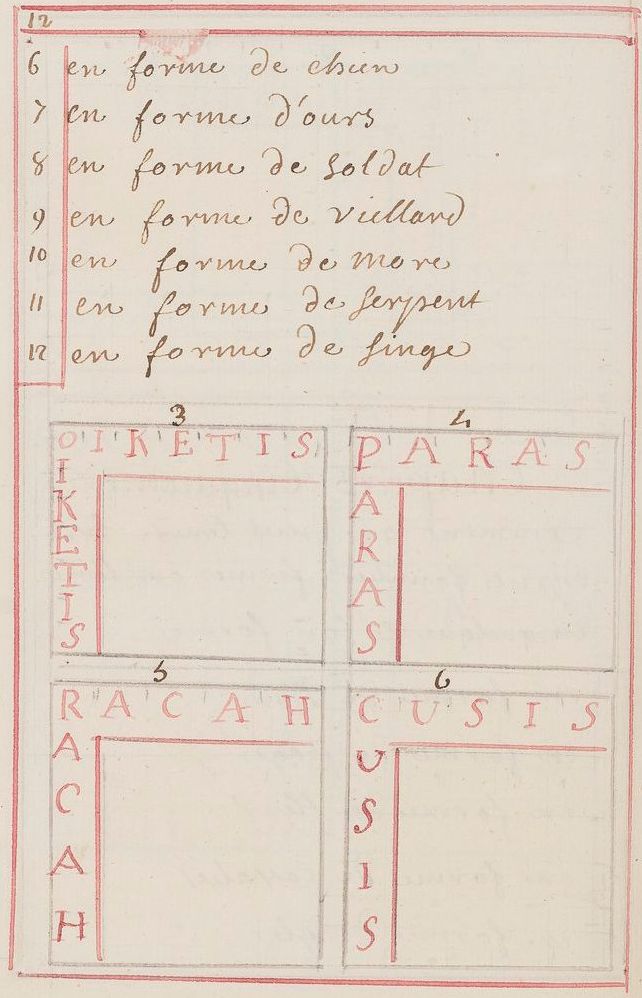 12
6 en forme de chien
7 en forme d'ours
8 en forme de soldat
9 en forme de viellard
10 en forme de more
11 en forme de serpent
12 en forme de singe
3
OIKETIS
I
K
E
T
I
S
4
PARAS
A
R
A
S
5
RACAH
A
C
A
H
6
CUSIS
U
S
I
S